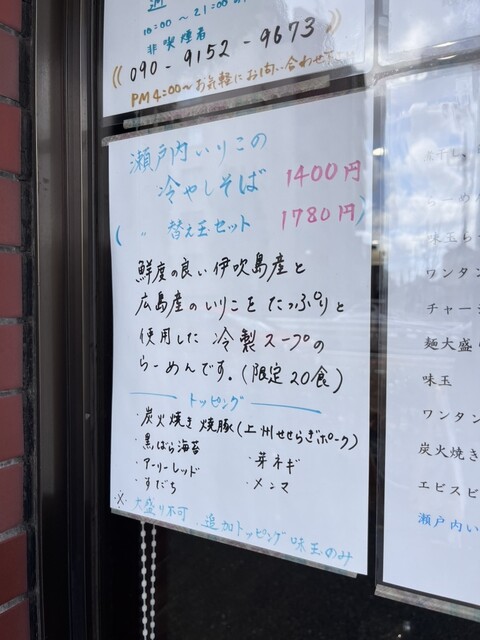 10:00〜21:00
非喫煙者
090-9152-9673
PM4:00〜お気軽にお問い合わせ下
瀬戸内いりこの
冷やしそば 1400円
( 〃 替え玉セット 1780円)
鮮度の良い伊吹島産と
広島産のいりこをたっぷりと
使用した冷製スープの
らーめんです。(限定20食)
トッピング
・炭火焼き焼豚(上州せせらぎポーク)
・黒ばら海苔 ・芽ネギ
・アーリーレッド ・メンマ
・すだち
※大盛り不可 追加トッピング味玉のみ
らーめん
味玉ら
ワンタン
チャーシ
麺大盛
味玉
ワンタン
炭火焼き
エビスビ
瀬戸内い